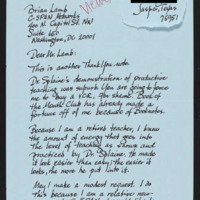 Brian Lamb
C-SPAN Networks
400 N. Capitol St NW
Suite 650
Washington, DC 20001
Jasper, Texas
75951
Dear Mr. Lamb:
This is another Thank You note.
De Splaine's demonstration of productive
teaching was superb. You are going to force
me to buy a VCR. The "Book
of the Month" Club has already made a
fortune off of me because of Booknotes.
Because I am a retired teacher, I know
the amount of energy that goes into
the level of teaching as shown and
practiced by Dr. Splaine. To make
it look easier than easy, the easier it
looks, the more he put into it.
May I make a modest request. I do
this because I am a relative new-